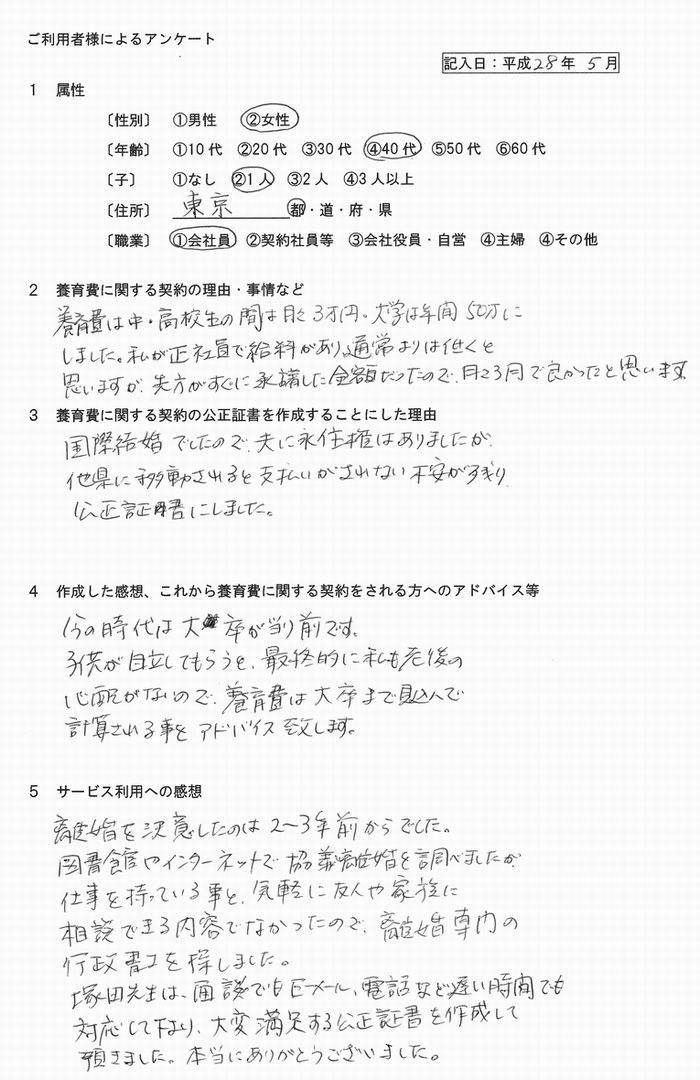 ご利用者様によるアンケート
記入日：平成28年 5月
1 属性
〔性別〕 ①男性 ②女性
〔年齢〕 ①10代 ②20代 ③30代 ④40代 ⑤50代 ⑥60代
〔子〕 ①なし ②1人 ③2人 ④3人以上
〔住所〕 東京 都・道・府・県
〔職業〕 ①会社員 ②契約社員等 ③会社役員・自営 ④主婦 ④その他
2 養育費に関する契約の理由・事情など
養育費は中・高校生の間は月々3万円。大学は年間50万に
しました。私が正社員で給料があり、通常よりは低くと
思いますが、先方がすぐに承諾した金額だったので、月々3円で良かったと思います。
3 養育費に関する契約の公正証書を作成することにした理由
国際結婚でしたので、夫に永住権はありましたが、
他県に移動されると支払いがされない不安がよぎり、
公正証書にしました。
4 作成した感想、これから養育費に関する契約をされる方へのアドバイス等
今の時代は大卒が当り前です。
子供が自立してもらうと、最終的に私も老後の
心配がないので、養育費は大卒まで見込んで
計算される事をアドバイス致します。
5 サービス利用への感想
離婚を決意したのは2〜3年前からでした。
図書館やインターネットで協議離婚を調べましたが、
仕事を持っている事と、気軽に友人や家族に
相談できる内容でなかったので、離婚専門の
行政書士を探しました。
塚田先生は、面談でもEメール、電話など遅い時間でも
対応して下り、大変満足する公正証書を作成して
頂きました。本当にありがとうございました。